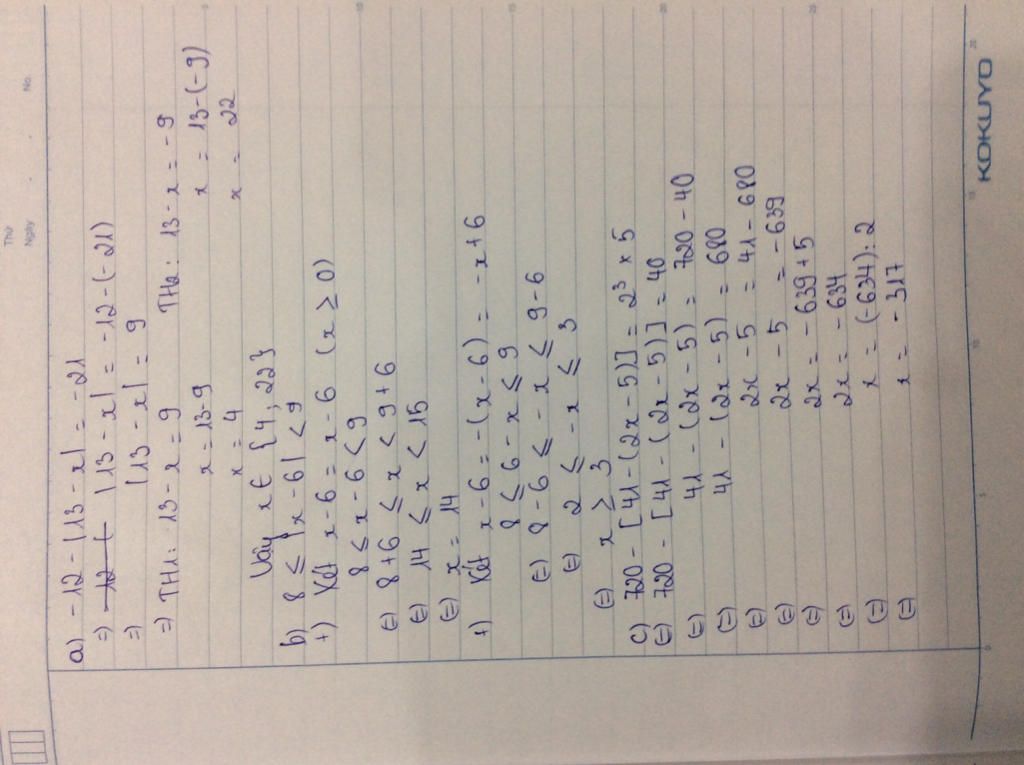 Thứ
Ngày . . No.
a) -12 - |13 - x| = -21
=) |13 - x| = -12 - (-21)
=) |13 - x| = 9
=) TH1: 13 - x = 9 TH2: 13 - x = -9
x = 13-9 x = 13-(-9)
x = 4 x = 22
Vậy x ∈ {4; 22}
b) 8 ≤ |x - 6| < 9
+) Xét x - 6 = x - 6 (x ≥ 0)
8 ≤ x - 6 < 9
(=) 8 + 6 ≤ x < 9 + 6
(=) 14 ≤ x < 15
(=) x = 14
+) Xét x - 6 = -(x - 6) = -x + 6
8 ≤ 6 - x ≤ 9
(=) 8 - 6 ≤ -x ≤ 9 - 6
(=) 2 ≤ -x ≤ 3
(=) x ≥ 3
c) 720 - [41 - (2x - 5)] = 2³ × 5
(=) 720 - [41 - (2x - 5)] = 40
(=) 41 - (2x - 5) = 720 - 40
(=) 41 - (2x - 5) = 680
(=) 2x - 5 = 41 - 680
(=) 2x - 5 = -639
(=) 2x = -639 + 5
(=) 2x = -634
(=) x = (-634) : 2
(=) x = -317
KOKUYO